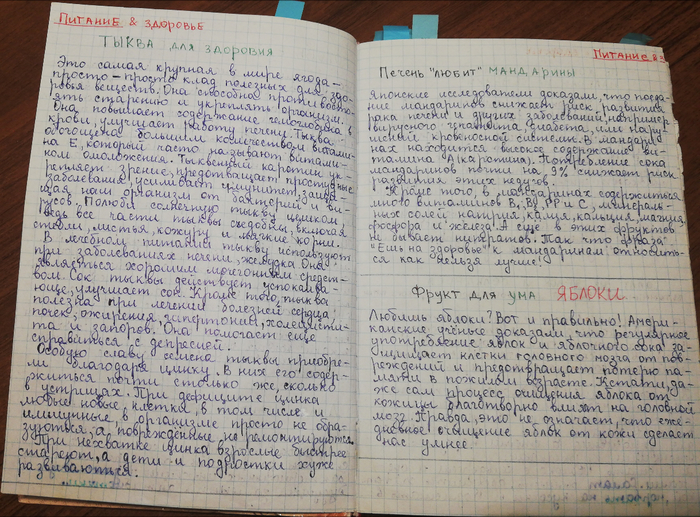 Питание & здоровье
Тыква для здоровия
Это самая крупная в мире ягода –
просто – просто клад полезных для здо-
ровья веществ. Она способна противосто-
ять старению и укреплять организм.
Она повышает содержание гемоглобина в
крови, улучшает работу печени. Тыква
обогащена большим количеством витами-
на Е, который часто называют витами-
ном омоложения. Тыквенный каротин ук-
репляет зрение, предотвращает простудные
заболевания, усиливает иммунитет, защи-
щая наш организм от бактерий и ви-
русов. Полюби солнечную тыкву целиком
ведь все части тыквы съедобны, включая
стебли, листья, кожуру и мягкие корни.
В лечебном питании тыкву используют
при заболеваниях печени, желудка. Она
является хорошим мочегонным средст-
вом. Сок тыквы действует успокаива-
юще, улучшает сон. Кроме того, тыква
полезна при лечении болезней сердца,
почек, ожирения, гипертонии, холецисти-
та и запоров. Она помогает ещё
справиться с депресией.
Особую славу семена тыквы приобре-
ли благодаря цинку. В них его содер-
житься почти столько же, сколько
в устрицах. При дефиците цинка
любые новые клетки, в том числе и
имунные, в организме просто не обра-
зуются, а повреждённые не ремонтируются.
При нехватке цинка взрослые быстрее
стареют, а дети и подростки хуже
развиваются.
Питание & з
Печень "любит" мандарины
Японские исследователи доказали, что поеда-
ние мандаринов снижает риск развития
рака печени и других заболеваний, например
вирусного гепатита, диабета, или нару-
шений кровеносной системы. В мандари-
нах находится высокое содержание ви-
тамина А (каротина). Потребление сока
мандаринов почти на 9% снижает риск
развития этих недугов.
Кроме того в мандаринах содержиться
много витаминов В, В2, РР и С, минераль-
ных солей натрия, калия, кальция, магния,
фосфора и железа. А ещё в этих фруктах
не бывает нитратов. Так что фраза
"Ешь на здоровье" к мандаринам относить-
ся как нельзя лучше!
Фрукт для ума яблоки
Любишь яблоки? Вот и правильно! Амери-
канские учёные доказали, что регулярное
употребление яблок и яблочного сока за-
щищает клетки головного мозга от пов-
реждений и предотвращает потерю па-
мяти в пожилом возрасте. Кстати, да-
же сам процесс очищения яблока от
кожицы благотворно влияет на головной
мозг. Правда, это не означает, что еже-
дневное очищение яблок от кожи сделает
нас умнее.